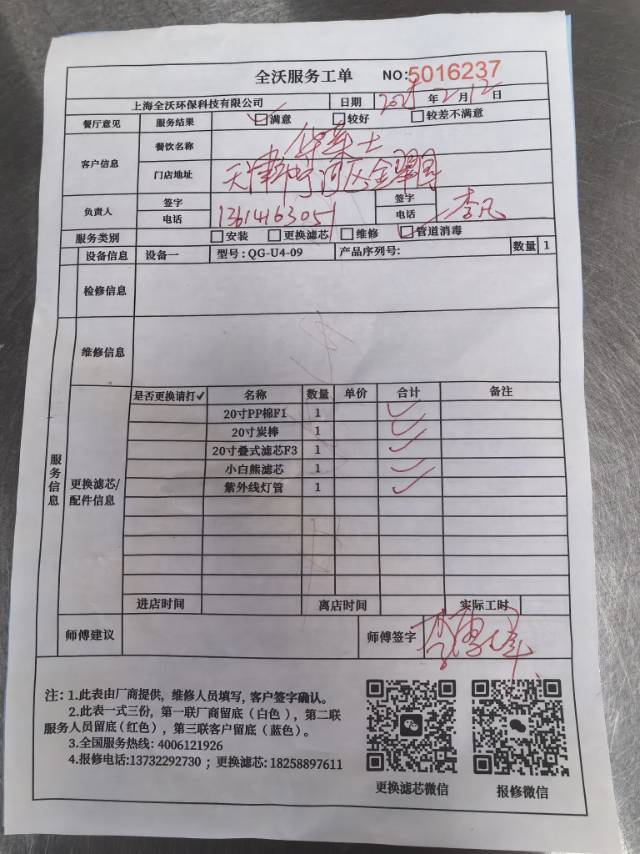 全沃服务工单 NO:5016237
上海全沃环保科技有限公司 日期 2025年2月12日
餐厅意见 服务结果 满意 较好 较差不满意
客户信息 餐饮名称 华莱士
门店地址 天津市宁河区金翠园
负责人 签字 签字 李凡
电话 13614163051 电话
服务类别 安装 更换滤芯 维修 管道消毒
设备信息 设备一 型号:QG-U4-09 产品序列号: 数量 1
检修信息
维修信息
服务信息
更换滤芯/配件信息
是否更换请打✓ 名称 数量 单价 合计 备注
20寸PP棉F1 1 ✓
20寸炭棒 1 ✓
20寸叠式滤芯F3 1 ✓
小白熊滤芯 1 ✓
紫外线灯管 1 ✓
进店时间 离店时间 实际工时
师傅建议 师傅签字
注:1.此表由厂商提供,维修人员填写,客户签字确认。
2.此表一式三份,第一联厂商留底(白色),第二联
服务人员留底(红色),第三联客户留底(蓝色)。
3.全国服务热线:4006121926
4.报修电话:13732292730;更换滤芯:18258897611
更换滤芯微信 报修微信